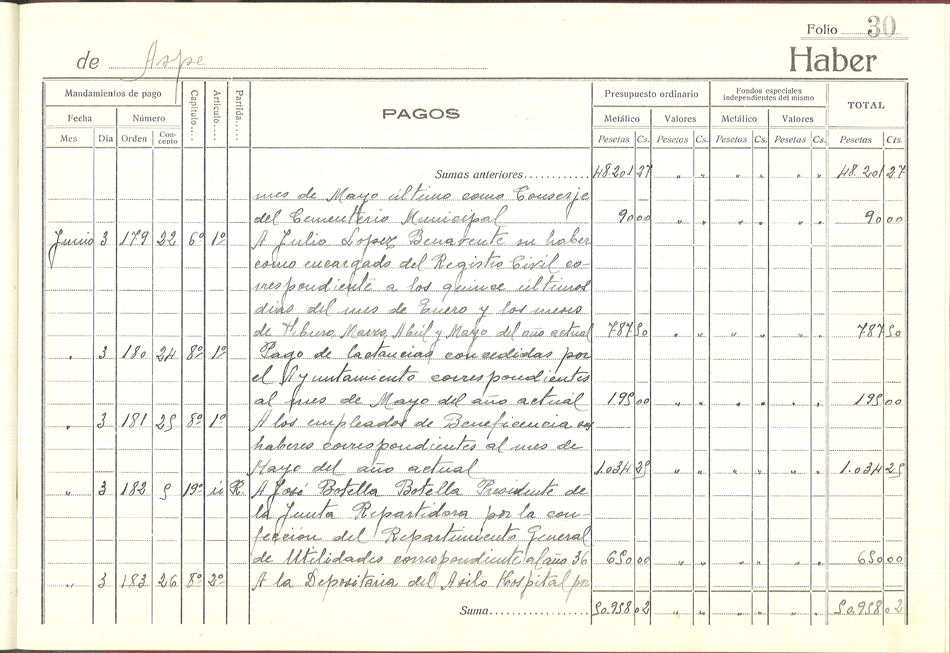 Folio 30
de Aspe
Haber
Mandamientos de pago
Capítulo....
Artículo....
Partida.....
PAGOS
Presupuesto ordinario
Fondos especiales independientes del mismo
TOTAL
Fecha Número
Metálico Valores Metálico Valores
Mes Día Orden Concepto
Pesetas Cs. Pesetas Cs. Pesetas Cs. Pesetas Cs. Pesetas Cts
Sumas anteriores............ 48.201 27 " " " " " " 48.201 27
mes de Mayo último como Conserje
del Cementerio Municipal 90 00 " " " " " " 90 00
Junio 3 179 22 6º 1º A Julio Lopez Benavente su haber
como encargado del Registro Civil co-
rrespondiente a los quince ultimos
dias del mes de Enero y los meses
de Febrero, Marzo, Abril y Mayo del año actual 787 50 " " " " " " 787 50
" 3 180 24 8º 1º Pago de lactancias concedidas por
el Ayuntamiento correspondientes
al mes de Mayo del año actual 195 00 " " " " " " 195 00
" 3 181 25 8º 1º A los empleados de Beneficencia sus
haberes correspondientes al mes de
Mayo del año actual 1.034 25 " " " " " " 1.034 25
" 3 182 5 19º R. A José Botella Botella Presidente de
la Junta Repartidora por la con-
fección del Repartimiento General
de Utilidades correspondiente al año 36 650 00 " " " " " " 650 00
" 3 183 26 8º 2º A la Depositaria del Asilo Hospital por
Suma.................. 50.958 02 " " " " " " 50.958 02